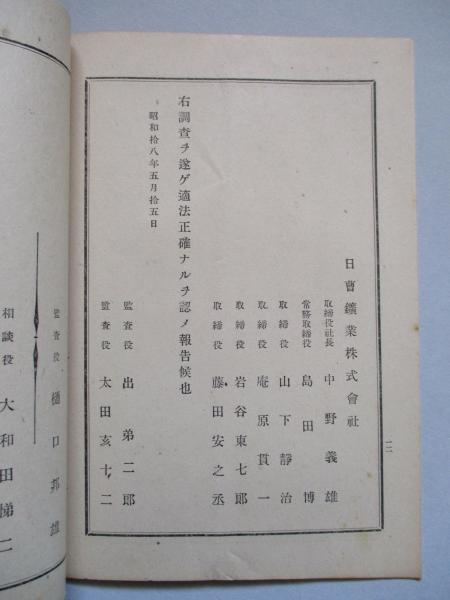 日曹鑛業株式會社
取締役社長 中野義雄
常務取締役 島田博
取締役 山下靜治
取締役 庵原貫一
取締役 岩谷東七郎
取締役 藤田安之丞
右調査ヲ遂ゲ適法正確ナルヲ認メ報告候也
昭和拾八年五月拾五日
監査役 出弟二郎
監査役 太田亥十二
三
監査役 樋口邦雄
相談役 大和田悌二